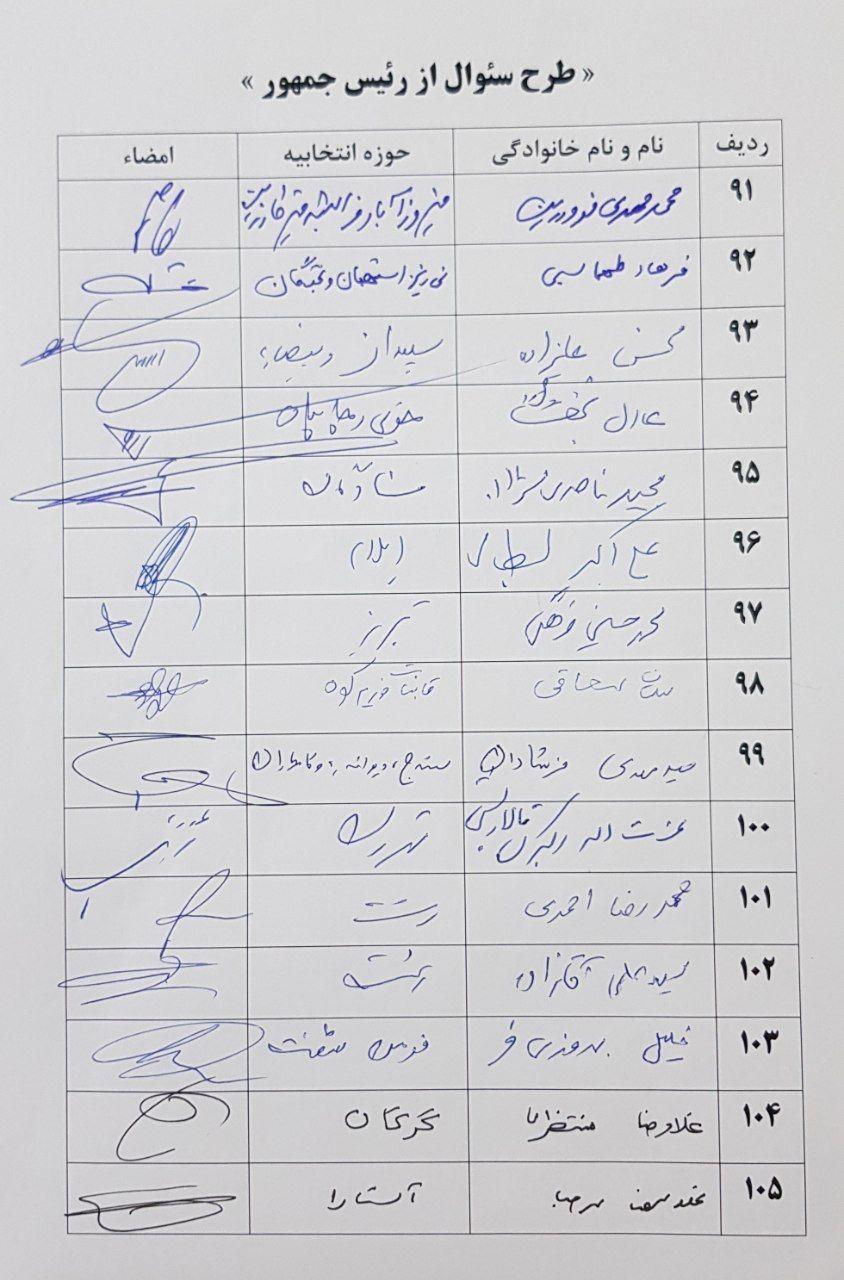 « طرح سئوال از رئیس جمهور »
ردیف نام و نام خانوادگی حوزه انتخابیه امضاء
۹۱ محمد مهدی فروردین
۹۲ فرهاد طهماسبی نی ریز استهبان و بختگان
۹۳ محسن علیزاده سپیدان و بیضاء
۹۴ عادل
۹۵ مجید ناصری نژاد شادگان
۹۶ علی اکبر ایلام
۹۷ محمد حسین فرهنگی تبریز
۹۸ قائنات
۹۹ سید مهدی فرشادان سنندج، دیواندره و کامیاران
۱۰۰ عزت اله اکبری تالارپشتی
۱۰۱ محمد رضا احمدی رشت
۱۰۲ سید علی آقازاده رشت
۱۰۳ خلیل بهروزی فر فومن شفت
۱۰۴ غلامرضا منتظری گرگان
۱۰۵ غلامرضا مرحبا آستارا